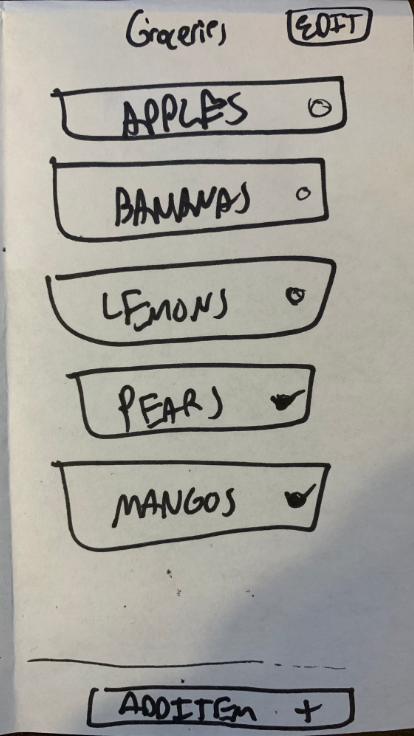 Groceries EDIT
APPLES
BANANAS
LEMONS
PEARS
MANGOS
ADD ITEM +